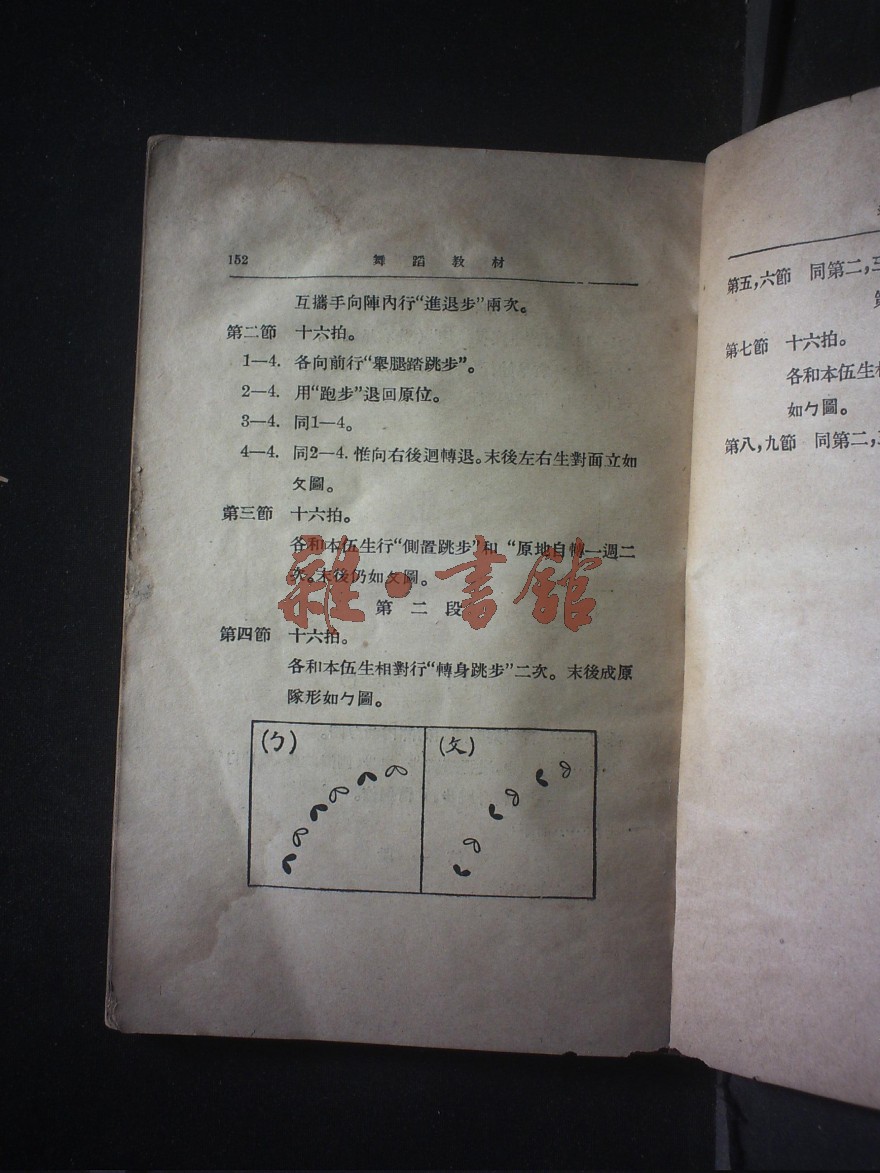 152 舞蹈教材
互攜手向陣內行“進退步”兩次。
第二節 十六拍。
1—4. 各向前行“舉腿踏跳步”。
2—4. 用“跑步”退回原位。
3—4. 同1—4。
4—4. 同2—4. 惟向右後迴轉退。末後左右生對面立如
ㄆ圖。
第三節 十六拍。
各和本伍生行“側置跳步”和“原地自轉一週二
次。末後仍如ㄆ圖。
第二段
第四節 十六拍。
各和本伍生相對行“轉身跳步”二次。末後成原
隊形如ㄅ圖。
(ㄅ) (ㄆ)
雜·書館
第五,六節 同第二,三
第
第七節 十六拍。
各和本伍生相
如ㄅ圖。
第八,九節 同第二,